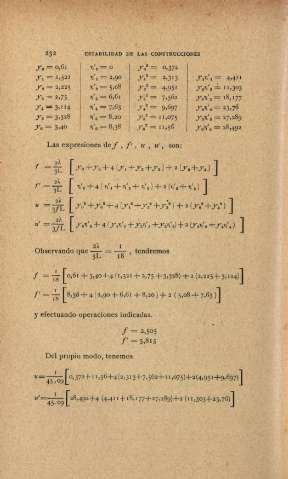 252 ESTABILIDAD DE LAS CONSTRUCCIONES
y₀ = 0,61 v'₀ = 0 y₀² = 0,372
y₁ = 1,521 v'₁ = 2,90 y₁² = 2,313 y₁v'₁ = 4,411
y₂ = 2,225 v'₂ = 5,08 y₂² = 4,951 y₂v'₂ = 11,303
y₃ = 2,75 v'₃ = 6,61 y₃² = 7,562 y₃v'₃ = 18,177
y₄ = 3,114 v'₄ = 7,63 y₄² = 9,697 y₄v'₄ = 23,76
y₅ = 3,328 v'₅ = 8,20 y₅² = 11,075 y₅v'₅ = 27,289
y₆ = 3,40 v'₆ = 8,38 y₆² = 11,56 y₆v'₆ = 28,492
Las expresiones de f , f' , u , u' , son:
f = 2λ/3L [ y₀ + y₆ + 4 ( y₁ + y₃ + y₅ ) + 2 ( y₂ + y₄ ) ]
f' = 2λ/3L [ v'₆ + 4 ( v'₁ + v'₃ + v'₅ ) + 2 ( v'₂ + v'₄ ) ]
u = 2λ/3fL [ y₀² + y₆² + 4 ( y₁² + y₃² + y₅² ) + 2 ( y₂² + y₄² ) ]
u' = 2λ/3fL [ y₆v'₆ + 4 ( y₁v'₁ + y₃v'₃ + y₅v'₅ ) + 2 ( y₂v'₂ + y₄v'₄ ) ]
Observando que 2λ/3L = 1/18 , tendremos
f = 1/18 [ 0,61 + 3,40 + 4 ( 1,521 + 2,75 + 3,328 ) + 2 ( 2,225 + 3,114 ) ]
f' = 1/18 [ 8,38 + 4 ( 2,90 + 6,61 + 8,20 ) + 2 ( 5,08 + 7,63 ) ]
y efectuando operaciones indicadas.
f = 2,505
f' = 5,815
Del propio modo, tenemos
u = 1/45,09 [ 0,372 + 11,56 + 4 ( 2,313 + 7,562 + 11,075 ) + 2 ( 4,951 + 9,697 ) ]
u' = 1/45,09 [ 28,492 + 4 ( 4,411 + 18,177 + 27,289 ) + 2 ( 11,303 + 23,76 ) ]